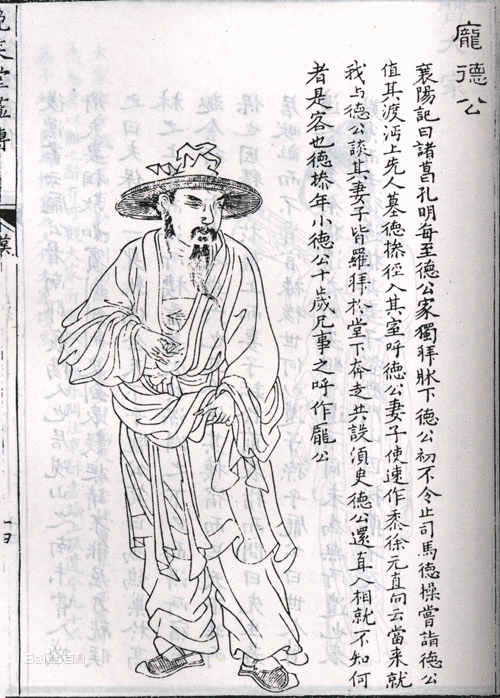 龐德公
襄陽記曰諸葛孔明每至德公家獨拜牀下德公初不令止司馬德操嘗詣德公
值其渡沔上先人墓德操徑入其室呼德公妻子使速作黍徐元直向云當來就
我与德公談其妻子皆羅拜於堂下奔走共設須臾德公還直入相就不知何
者是客也德操年小德公十歲兄事之呼作龐公
晚笑堂畫傳
漢
Baidu百科